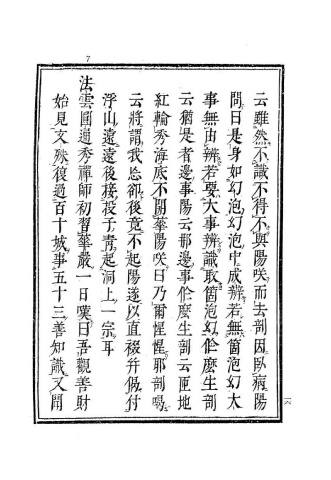 7
云雖然不識不得不與陽咲而去剖因臥病陽
問曰是身如幻泡幻泡中成辨若無箇泡幻大
事無由辨若要大事辨識取箇泡幻作麼生剖
云猶是者邊事陽云那邊事作麼生剖云匝地
紅輪秀海底不開華陽咲曰乃爾惺惺耶剖喝
云將謂我忘却後竟不起陽遂以直裰并偈付
浮山遠遠後接投子青起洞上一宗耳
法雲圓通秀禪師初習華嚴一日嘆曰吾觀善財
始見文殊復過百十城事五十三善知識又聞
一六